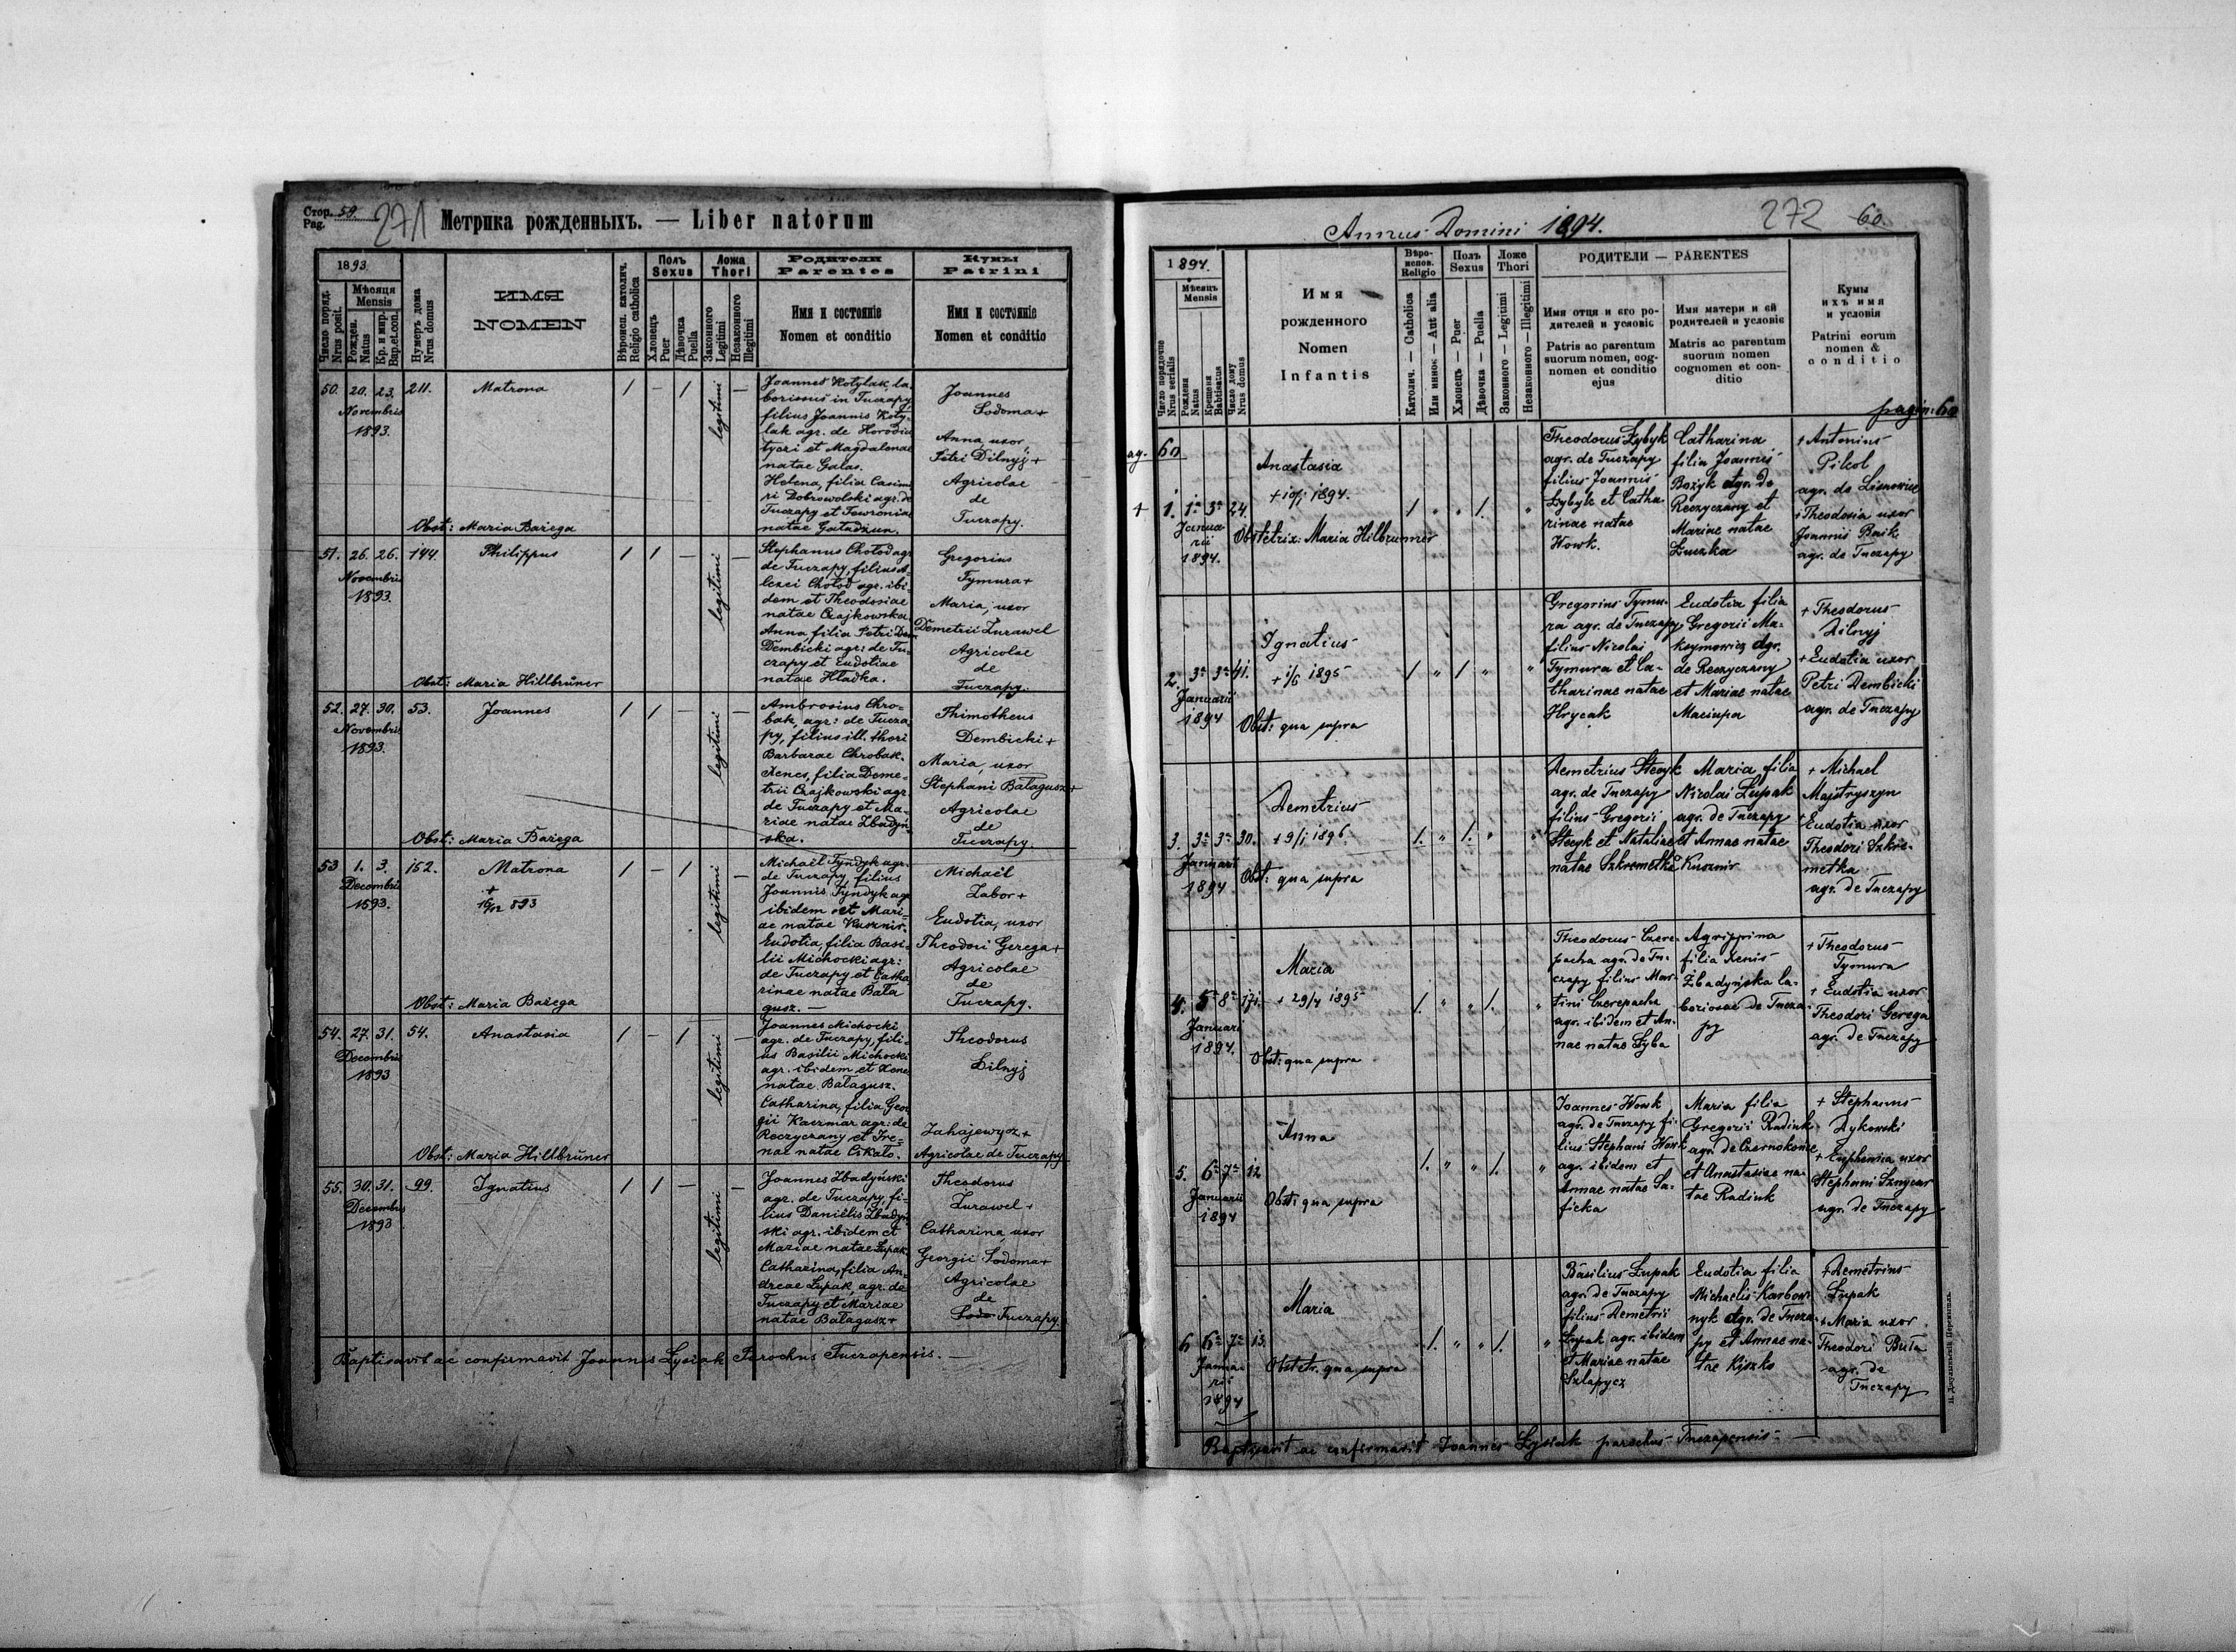 Стор. 59.
Pag.
271
Метрика рожденныхъ. — Liber natorum
1893
Число поряд.
Nrus posit.
Мѣсяця
Mensis
Рожден.
Natus
Кр. и мир.
Bap.et.con.
Нумеръ дома
Nrus domus
ИМЯ
NOMEN
Вѣроисп. католич.
Religio catholica
Полъ
Sexus
Хлопець
Puer
Дѣвочка
Puella
Ложа
Thori
Законного
Legitimi
Незаконного
Illegitimi
Родители
Parentes
Имя и состоянїе
Nomen et conditio
Кумы
Patrini
Имя и состоянїе
Nomen et conditio
50. 20. 23. 211. Matrona / — / legitimi —
Novembris
1893.
Joannes Kotylak, la-
boriosus in Tuczapy
filius Joannis Koty-
lak agr. de Horodis
tyczi et Magdalenae
natae Galas.
Helena, filia Casimi
ri Dobrowolski agr. de
Tuczapy et Fewronia
natae Gatadzun.
Joannes
Sodoma+
Anna, uxor
Petri Dilnyj+
Agricolae
de
Tuczapy.
Obst: Maria Bażega
51. 26. 26. 144. Philippus / / — legitimi —
Novembris
1893.
Stephanus Chołod agr
de Tuczapy, filius A-
lexei Chołod agr. ibi
dem et Theodosiae
natae Czajkowska
Anna filia Petri Dem
Dembicki agr: de Tu-
czapy et Eudotiae
natae Hladka.
Gregorius
Tymura+
Maria, uxor
Demetrii Żurawel
Agricolae
de
Tuczapy.
Obst: Maria Hillbrüner
52. 27. 30. 53. Joannes / / — legitimi —
Novembris
1893.
Ambrosius Chro-
bak, agr: de Tucza-
py, filius ill. thori
Barbarae Chrobak.
Xenes, filia Deme-
trii Czajkowski agr
de Tuczapy et Ma-
riae natae Zbadyń-
ska.
Thimotheus
Dembicki+
Maria, uxor
Stephani Bałagusz+
Agricolae
de
Tuczapy.
Obst: Maria Bażega
53 1. 3. 152. Matrona / — / legitimi —
Decembris
1893.
+
16/12 893
Michaël Tyndyk agr.
de Tuczapy, filius
Joannis Tyndyk agr
ibidem et Mari-
ae natae Kusznir.
Eudotia, filia Basi-
lii Michocki agr:
de Tuczapy et Catha
rinae natae Bała
gusz. —
Michaël
Zabor+
Eudotia, uxor
Theodori Gerega+
Agricolae
de
Tuczapy.
Obst: Maria Bażega
54. 27. 31. 54. Anastasia / — / legitimi —
Decembris
1893
Joannes Michocki
agr. de Tuczapy, fili-
us Basilii Michocki
agr. ibidem et Xenes
natae Bałagusz.
Catharina, filia Geor
gii Kaczmar agr: de
Reczyczany et Ire-
nae natae Cikało.
Theodorus
Dilnyj
Zahajewycz+
Agricolae de Tuczapy
Obst: Maria Hillbrüner
55. 30. 31. 99. Ignatius / / — legitimi —
Decembris
1893
Joannes Zbadyński
agr. de Tuczapy, fi-
lius Daniëlis Zbadyń
ski agr. ibidem et
Mariae natae Łupak.
Catharina, filia An-
dreae Łupak, agr. de
Tuczapy et Mariae
natae Bałagusz+
Theodorus
Żurawel+
Catharina, uxor
Georgii Sodoma+
Agricolae
de
Sodo Tuczapy.
Baptisavit ac confirmavit Joannes Łysiak Parochus Tuczapensis. —
Annus Domini 1894.
272 60.
1894.
Число порядочне
Nrus serialis
Мѣсяць
Mensis
Рождена
Natus
Крещена
Babtisatus
Число дому
Nrus domus
Имя
рожденного
Nomen
Infantis
Вѣро-
испов.
Religio
Католич. — Catholica
Или инное — Aut alia
Полъ
Sexus
Хлопець — Puer
Дѣвочка — Puella
Ложе
Thori
Законного — Legitimi
Незаконного — Illegitimi
РОДИТЕЛИ — PARENTES
Имя отця и его ро-
дителей и условіє
Patris ac parentum
suorum nomen, cog-
nomen et conditio
ejus
Имя матери и єй
родителей и условіє
Matris ac parentum
suorum nomen
cognomen et con-
ditio
Кумы
ихъ имя
и условія
Patrini eorum
nomen &
conditio
pagin: 60
ag. 60
+ 1. 1a 3a 24. Anastasia / " " /. "
+ 10/1 1894.
Januarii
1894.
Obstetrix: Maria Hilbrunner
Theodorus Łybyk
agr. de Tuczapy
filius Joannis
Łybyk et Catha-
rinae natae
Howk.
Catharina
filia Joannis
Bożyk agr. de
Reczyczany et
Mariae natae
Łuczka
+ Antonius
Pikol
agr. de
+ Theodosia uxor
Joannis Baik
agr. de Tuczapy
2. 3a 3a 41. Ignatius / " / " "
+ 1/6 1895
Januarii
1894
Obst: qua supra
Gregorius Tymu-
ra agr. de Tuczapy
filius Nicolai
Tymura et Ca-
tharinae natae
Hrycak
Eudotia filia
Gregorii Ma-
ksymowicz agr.
de Reczyczany
et Mariae natae
Maciupa
+ Theodorus
Dilnyj
+ Eudotia uxor
Petri Dembicki
agr. de Tuczapy
3. 3a 3a 30. Demetrius /. " /. " "
+ 9/1 1896
Januarii
1894
Obst: qua supra
Demetrius Stecyk
agr. de Tuczapy
filius Gregorii
Stecyk et Nataliae
natae Szkremetka
Maria filia
Nicolai Łupak
agr. de Tuczapy
et Annae natae
Kusznir
+ Michael
Majstryszyn
+ Eudotia uxor
Theodori Szkre-
metka
agr. de Tuczapy
4. 5a 8a 171. Maria /. " " /. "
+ 29/4 1895
Januarii
1894.
Obst: qua supra
Theodorus Czere-
pacha agr. de Tu-
czapy filius Mar-
tini Czerepacha
agr. ibidem et An-
nae natae Syba
Agrippina
filia Xenis
Zbadyńska la-
boriosae de Tucza-
py
+ Theodorus
Tymura
+ Eudotia uxor
Theodori Gerega
agr. de Tuczapy
5. 6a 7a 12 Anna /. " " /. "
Januarii
1894
Obst: qua supra
Joannes Howk
agr. de Tuczapy fi-
lius Stephani Howk
agr. ibidem et
Annae natae Sa-
ficka
Maria filia
Gregorii Radiuk
agr. de Czernokońce
et Anastasiae na-
tae Radiuk
+ Stephanus
Dykowski
+ Euphemia uxor
Stephani Sznycar
agr. de Tuczapy
6 6a 7a 13. Maria /. " " /. "
Januarii
1894
Obstetr. qua supra
Basilius Łupak
agr. de Tuczapy
filius Demetrii
Łupak agr. ibidem
et Mariae natae
Szlapycz
Eudotia filia
Michaelis Karbow
nyk agr. de Tucza-
py et Annae na-
tae Kyszko
+ Demetrius
Łupak
+ Maria uxor
Theodori Buła
agr. de
Tuczapy
Baptisavit ac confirmavit Joannes Łysiak parochus Tuczapensis —